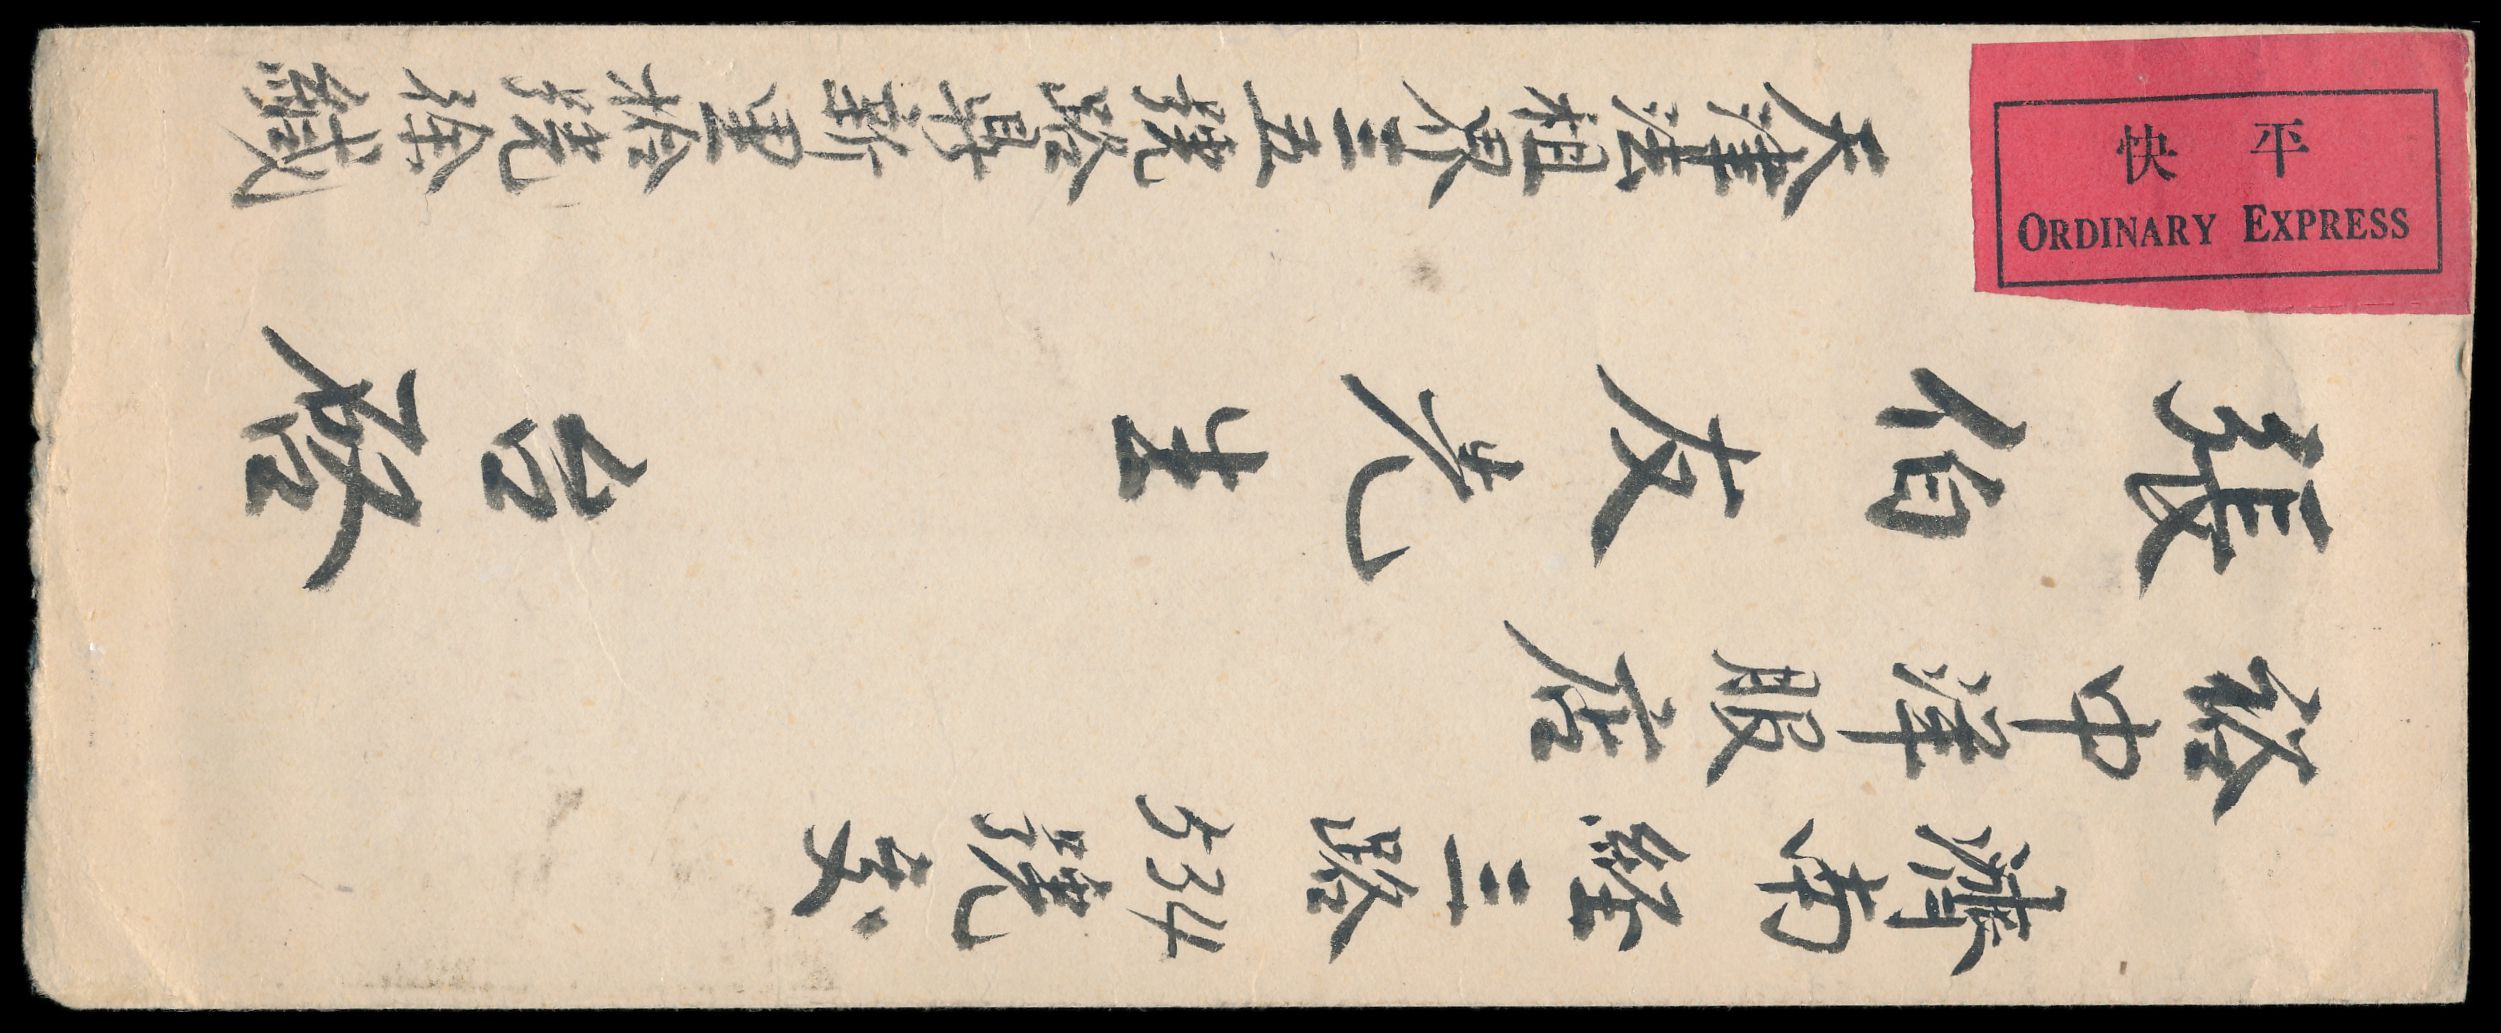 平快
ORDINARY EXPRESS
濟南經三路534號交
裕中洋服店
張伯友先生 台啓
天津法租界三五號路新里拾號徐緘